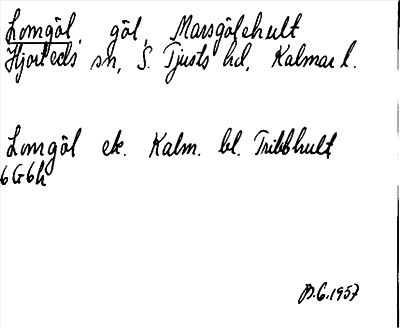 Lomgöl, göl, Marsgölehult
Hjorteds sn, S. Tjusts hd, Kalmar l.
Lomgöl ek. Kalm. bl. Tribbhult
6G6h
B.G.1957